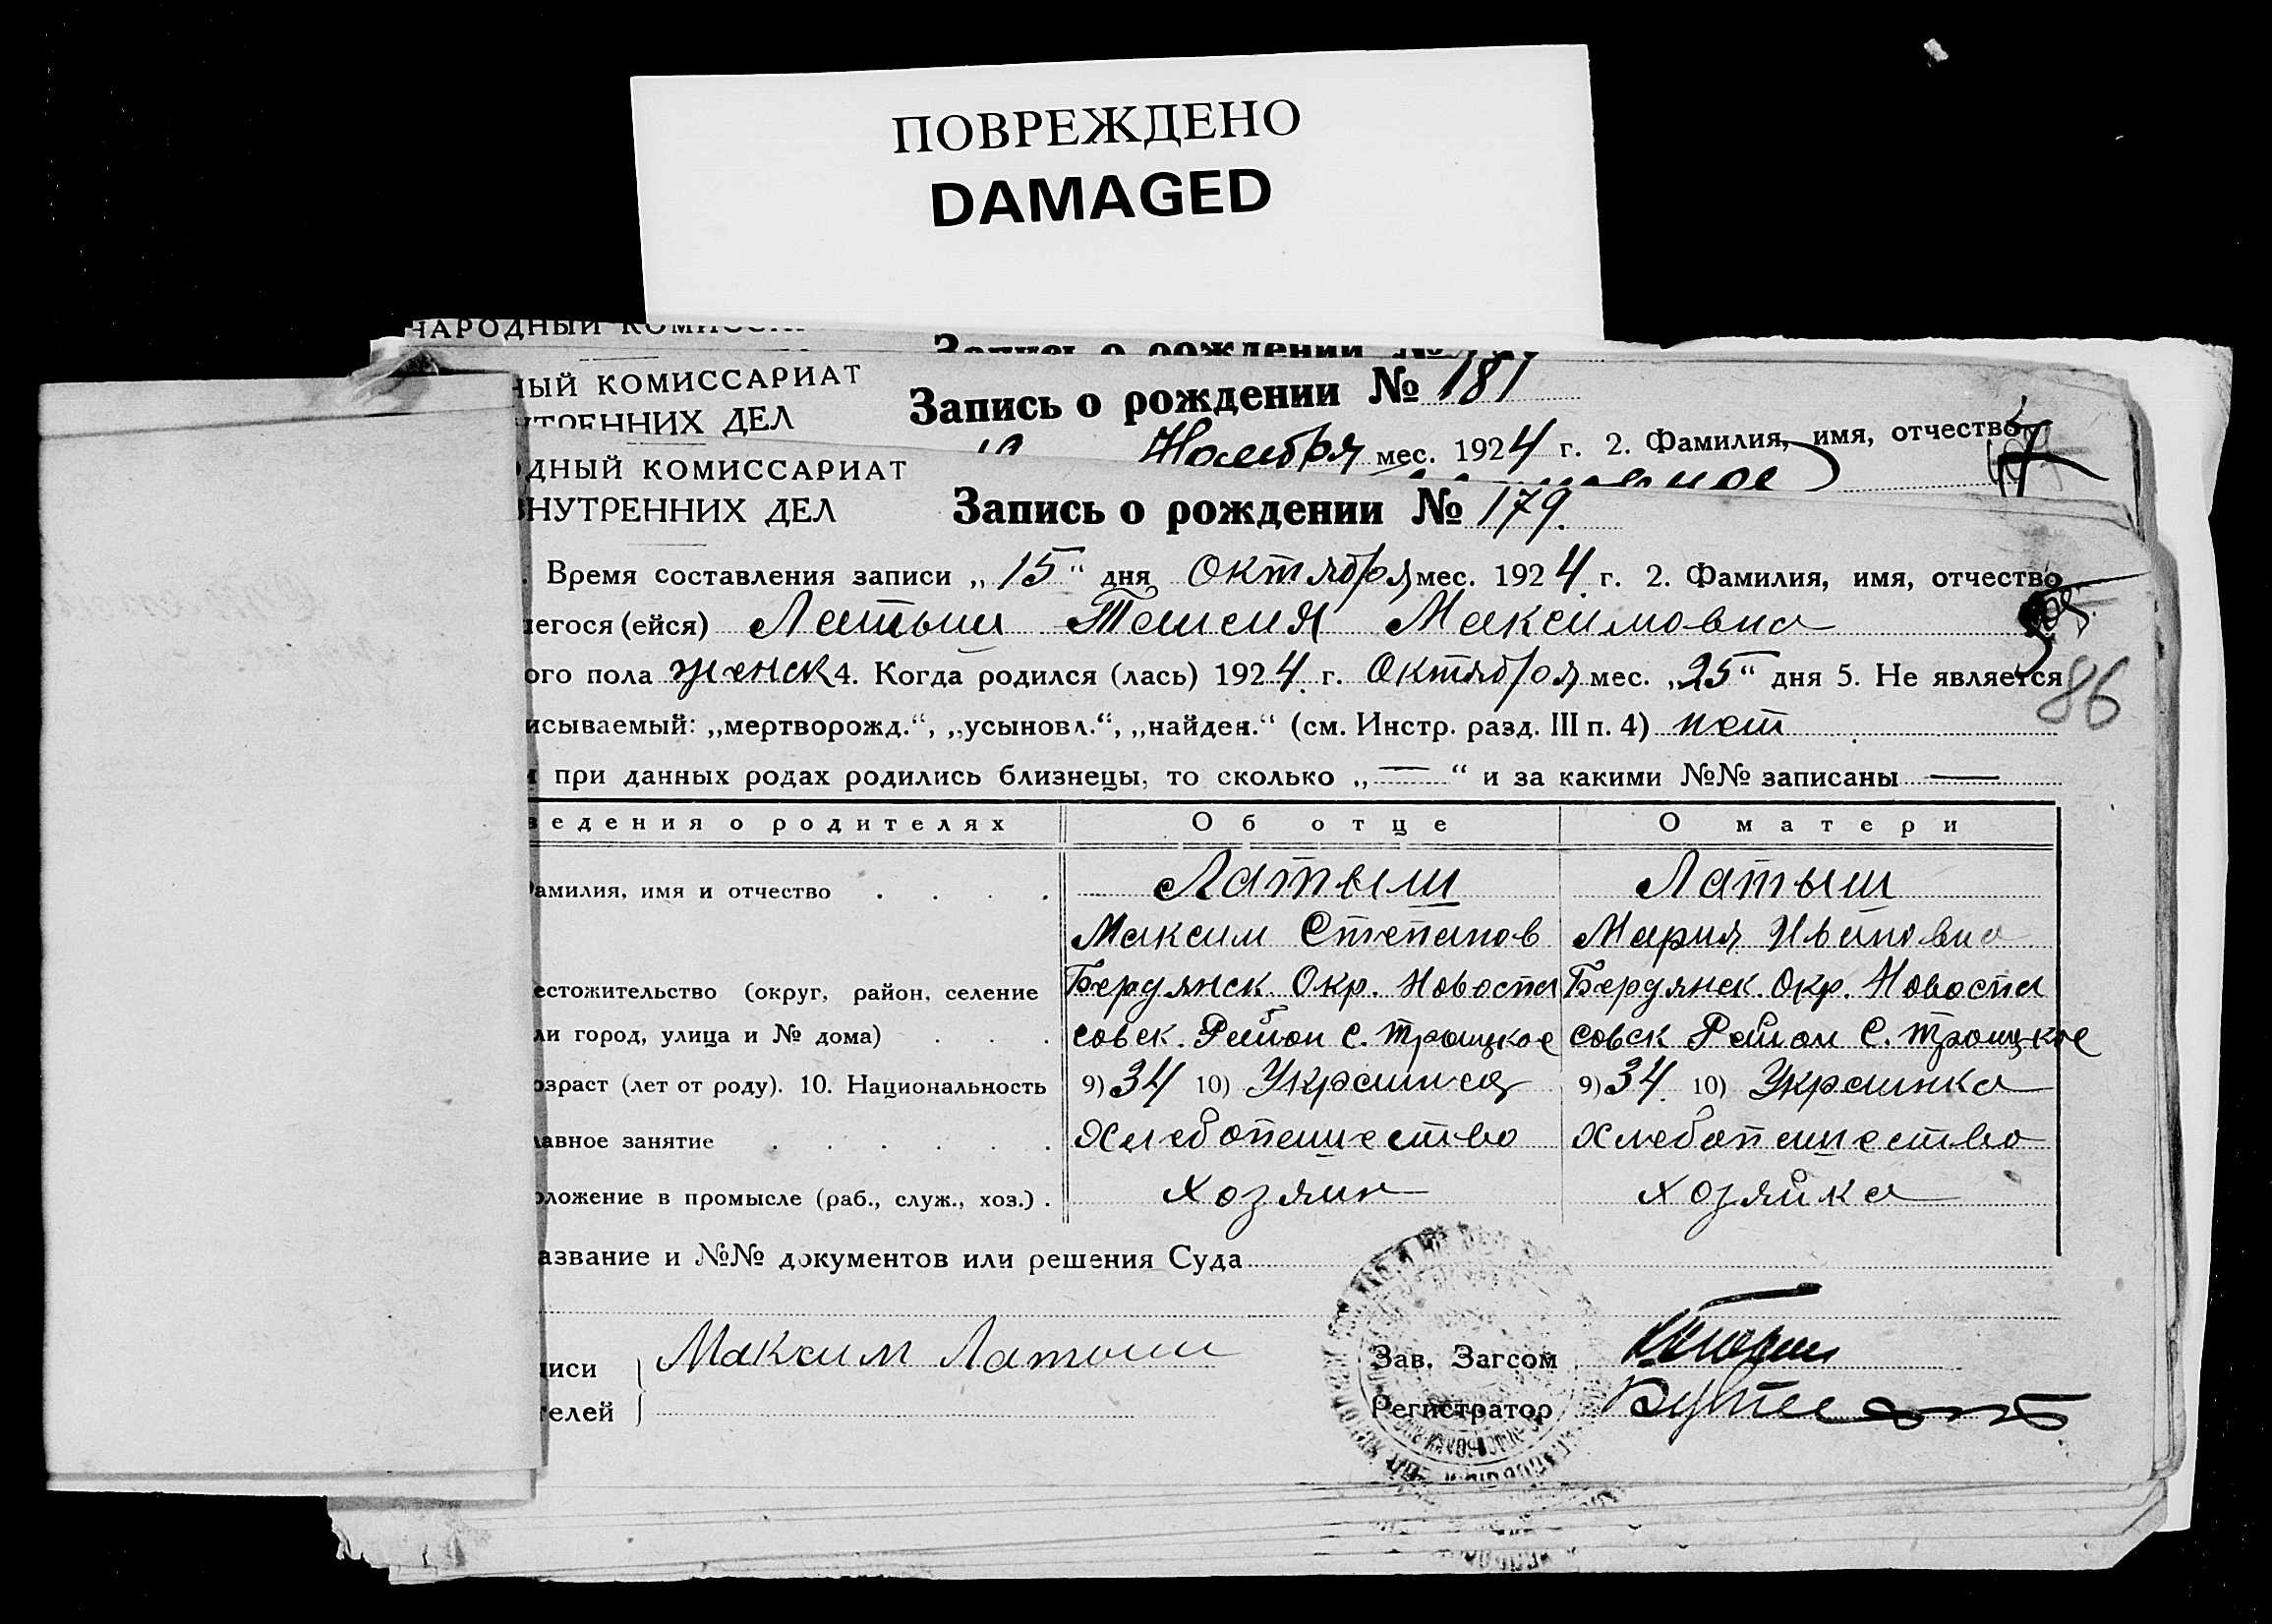 ПОВРЕЖДЕНО
DAMAGED
НАРОДНЫЙ
Запись о рождении №
НЫЙ КОМИССАРИАТ
УТРЕННИХ ДЕЛ
Запись о рождении № 181
Ноября мес. 1924 г. 2. Фамилия, имя, отчество
ОДНЫЙ КОМИССАРИАТ
ВНУТРЕННИХ ДЕЛ
Запись о рождении № 179.
. Время составления записи „15“ дня Октября мес. 1924 г. 2. Фамилия, имя, отчество
шегося (ейся) Латыш Таисия Максимовна
ого пола женск 4. Когда родился (лась) 1924. г. Октября мес. „25“ дня 5. Не является
86
исываемый: „мертворожд.“, „усыновл.“, „найден.“ (см. Инстр. разд. III п. 4) нет
и при данных родах родились близнецы, то сколько „—“ и за какими №№ записаны —
ведения о родителях Об отце О матери
Фамилия, имя и отчество . . . . Латыш Латыш
Максим Степанов Мария Ивановна
естожительство (округ, район, селение Бердянск. Окр. Новоспа Бердянск. Окр. Новоспа
ли город, улица и № дома) . . . совск. Район с. Троицкое совск Район с. Троицкое
озраст (лет от роду). 10. Национальность 9) 34 10) Украинец 9) 34. 10) Украинка
лавное занятие . . . . . . Хлебопашество Хлебопашество
оложение в промысле (раб., служ., хоз.) . Хозяин хозяйка
азвание и №№ документов или решения Суда
писи Максим Латыш Зав. Загсом
телей Регистратор